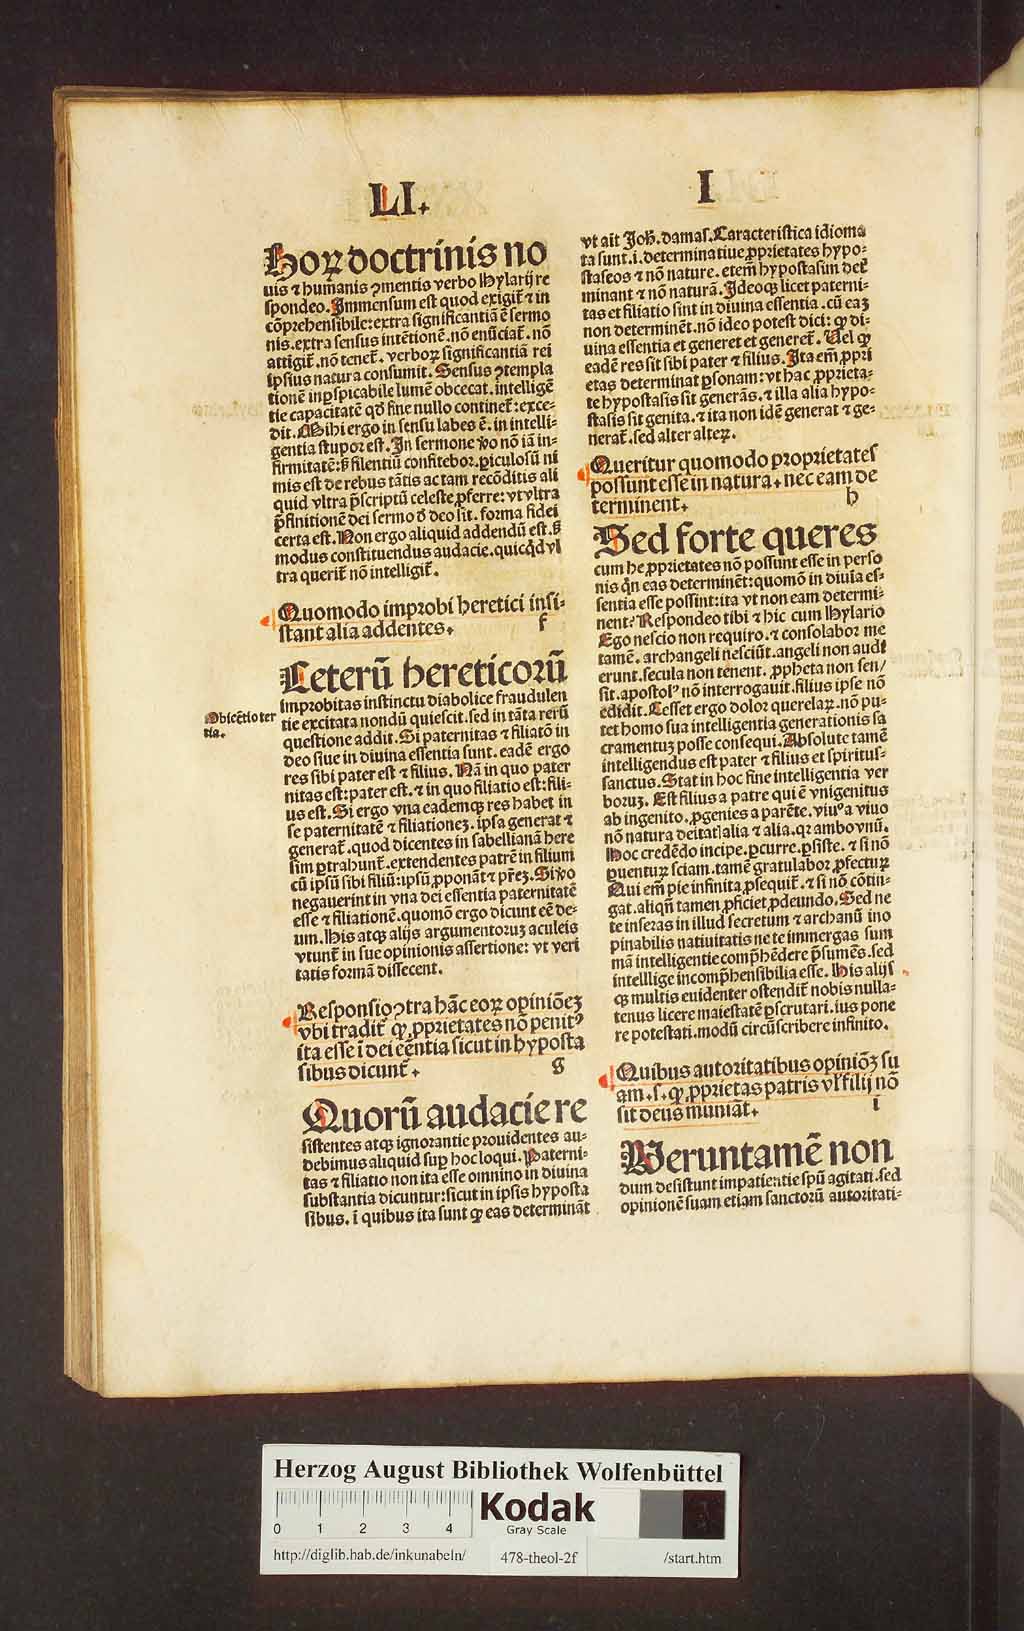 LI.
I
Horꝝ doctrinis no
uis ⁊ humānis ꝯmentis verbo Hylarij re
spondeo. Immensum est quod exigit᷑ ⁊ in
cōprehensibile: extra significantiā ē sermo
nis. extra sensus intētionē. nō enūciat᷑. nō
attigit᷑. nō tenet᷑. verboꝝ significantiā rei
ipsius natura consumit. Sensus ꝯtempla
tionē inꝑspicabile lumē obcecat. intelligē
tie capacitatē qđ fine nullo continet᷑: exce-
dit. Mihi ergo in sensu labes ē. in intelli-
gentia stupor est. In sermone ꝟo nō iā in-
firmitatē: sꝫ silentiū confitebor. ꝑiculosū ni
mis est de rebus tātis ac tam recōditis ali
quid vltra p̄scriptū celeste ꝓferre: vt vltra
p̄finitionē dei sermo đ deo sit. forma fidei
certa est. Non ergo aliquid addendū est. sꝫ
modus constituendus audacie. quicq̇d vl
tra querit᷑ nō intelligit᷑.
Quomodo improbi heretici insi-
stant alia addentes. f
Ceterū hereticorū
improbitas instinctu diabolice fraudulen
Obiectio ter
tia.
tie excitata nondū quiescit. sed in tāta rerū
questione addit. Si paternitas ⁊ filiatō in
deo siue in diuina essentia sunt. eadē ergo
res sibi pater est ⁊ filius. Nā in quo pater
nitas est: pater est. ⁊ in quo filiatio est: fili-
us est. Si ergo vna eademqꝫ res habet in
se paternitatē ⁊ filiationeꝫ. ipsa generat ⁊
generat᷑. quod dicentes in sabellianā here
sim ꝑtrahunt᷑. extendentes patrē in filium
cū ipsū sibi filiū: ipsū ꝓponāt ⁊ pr̄eꝫ. Si ꝟo
negauerint in vna dei essentia paternitatē
esse ⁊ filiationē. quomō ergo dicunt eē de-
um. His atqꝫ alijs argumentoruꝫ aculeis
vtunt᷑ in sue opinionis assertione: vt veri
tatis formā dissecent.
Responsio ꝯtra hāc eoꝝ opiniōeꝫ
vbi tradit᷑ ꝙ ꝓprietates nō penitꝰ
ita esse ī dei eēntia sicut in hyposta
sibus dicunt᷑. g
Quorū audacie re
sistentes atqꝫ ignorantie prouidentes au-
debimus aliquid suꝑ hoc loqui. Paterni-
tas ⁊ filiatio non ita esse omnino in diuina
substantia dicuntur: sicut in ipsis hyposta
sibus. ī quibus ita sunt ꝙ eas determināt
vt ait Joh̄. damaſ. Caracteristica idioma
ta sunt. i. determinatiue ꝓprietates hypo-
staseos ⁊ nō nature. etem̄ hypostasim det᷑
minant ⁊ nō naturā. Ideoqꝫ licet paterni-
tas et filiatio sint in diuina essentia. cū eaꝫ
non determinēt. nō ideo potest dici: ꝙ di-
uina essentia et generet et generet᷑. Uel ꝙ
eadē res sit sibi pater ⁊ filius. Ita em̄ ꝓpri
etas determinat ꝑsonam: vt hac ꝓprieta-
te hypostasis sit generās. ⁊ illa alia hypo-
stasis sit genita. ⁊ ita non idē generat ⁊ ge-
nerat᷑. sed alter alteꝝ.
Queritur quomodo proprietates
possunt esse in natura. nec eam de
terminent. h
Sed forte queres
cum he ꝓprietates nō possunt esse in perso
nis q̇n eas determinēt: quomō in diuīa es-
sentia esse possint: ita vt non eam determi-
nent? Respondeo tibi ⁊ hic cum Hylario
Ego nescio non requiro. ⁊ consolabor me
tamē. archangeli nesciūt. angeli non audi
erunt. secula non tenent. ꝓpheta non sen/
sit. apostolꝰ nō interrogauit. filius ipse nō
edidit. Cesset ergo dolor querelaꝝ. nō pu-
tet homo sua intelligentia generationis sa
cramentuꝫ posse consequi. Absolute tamē
intelligendus est pater ⁊ filius et spiritus-
sanctus. Stat in hoc fine intelligentia ver
boruꝫ. Est filius a patre qui ē vnigenitus
ab ingenito. ꝓgenies a parēte. viuꝰ a viuo
nō natura deitatꝭ alia ⁊ alia. qꝛ ambo vnū.
Hoc credēdo incipe. ꝑcurre. ꝑsiste. ⁊ si nō
ꝑuenturꝫ sciam. tamē gratulabor ꝓfecturꝫ
Qui em̄ pie infinita ꝓsequit᷑. ⁊ si nō cōtin-
gat. aliqn̄ tamen ꝓficiet ꝓdeundo. Sed ne
te inseras in illud secretum ⁊ archanū ino
pinabilis natiuitatis ne te immergas sum
mā intelligentie comp̄hēdere p̄sumēs. sed
intelllige incomp̄hensibilia esse. His alijs
qꝫ multis euidenter ostendit᷑ nobis nulla-
tenus licere maiestatē ꝑscrutari. ius pone
re potestati. modū circūscribere infinito.
Quibus autoritatibus opiniōꝫ su
am. s. ꝙ ꝓprietas patris vl̓ filij nō
sit deus muniāt. i
Veruntamē non
dum desistunt impatientie spū agitati. sed
opinionē suam etiam sanctorū autoritati-
Herzog August Bibliothek Wolfenbüttel
0 1 2 3 4
Kodak
Gray Scale
http://diglib.hab.de/inkunabeln/ 478-theol-2f /start.htm